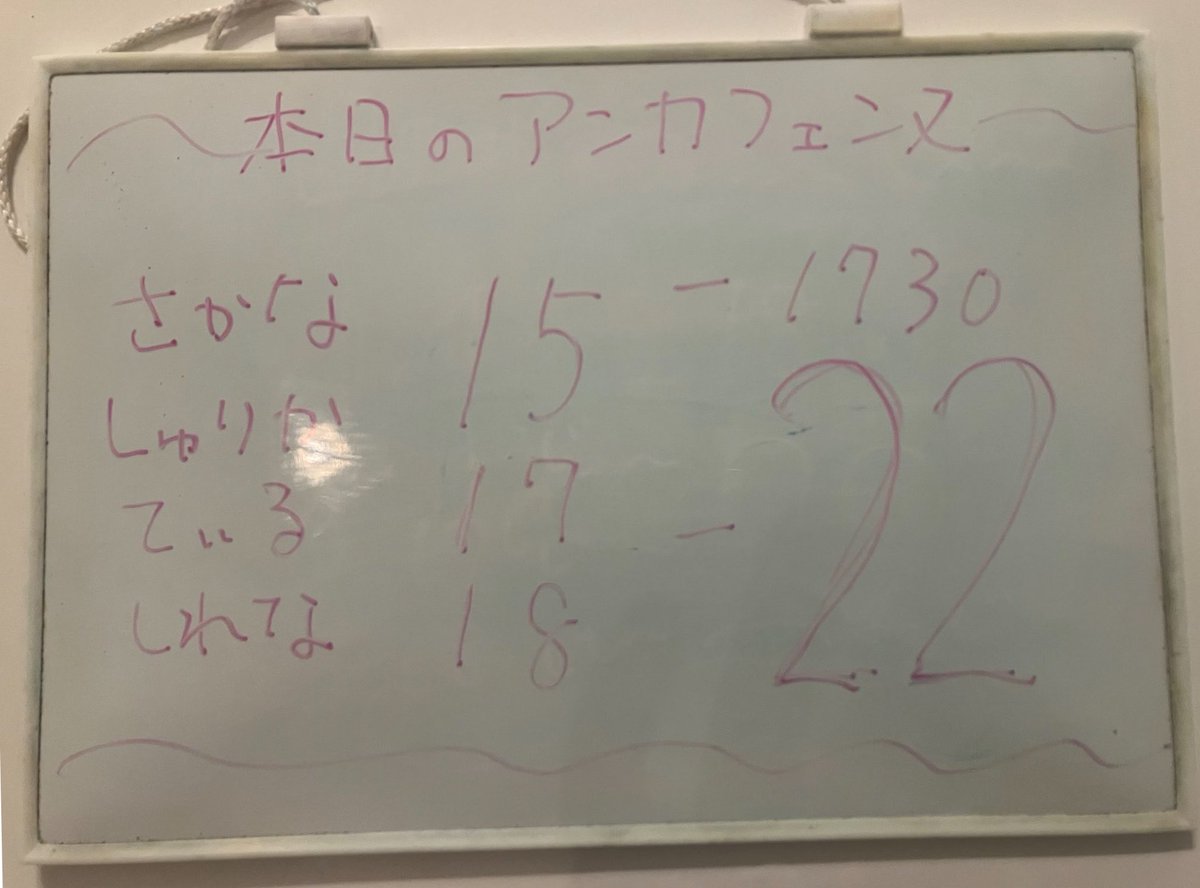 本日のアンカフェンヌ
さかな 15 - 1730
しゅりか
てぃる 17 - 22
しれな 18